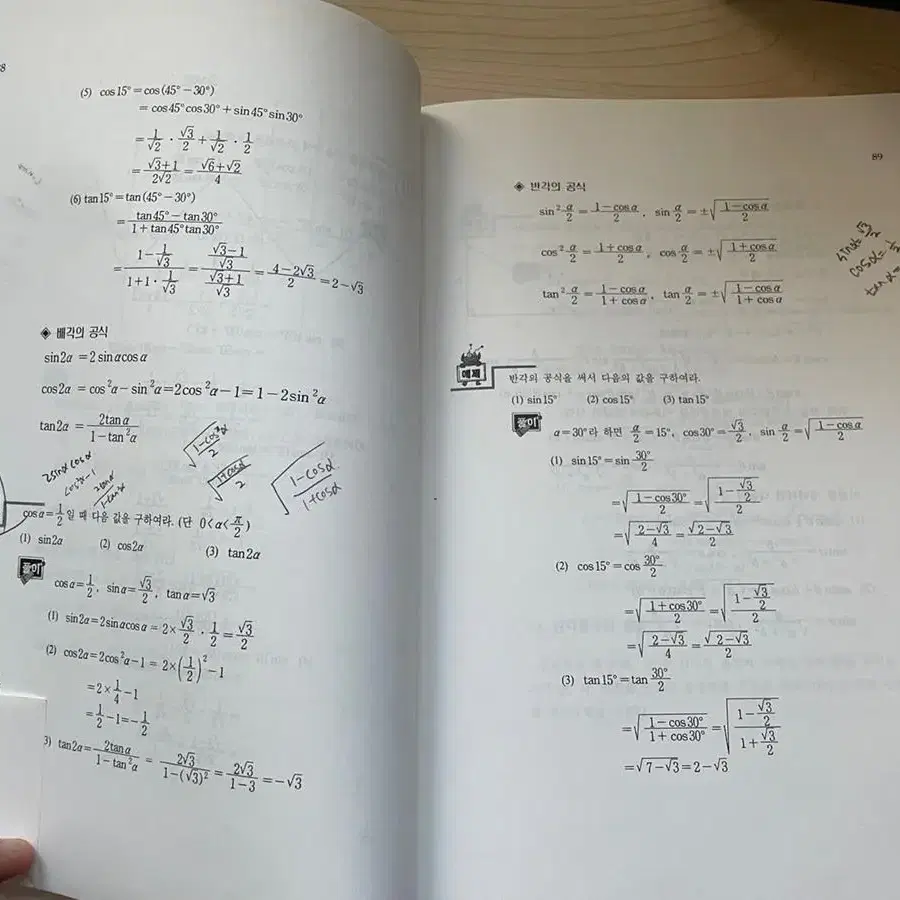 8
(5) cos15°=cos(45°-30°)
= cos45°cos30°+sin45°sin30°
= 1/√2 · √3/2 + 1/√2 · 1/2
= (√3+1)/(2√2) = (√6+√2)/4
(6) tan15°=tan(45°-30°)
= (tan45°-tan30°)/(1+tan45°tan30°)
= (1-1/√3)/(1+1·1/√3) = ((√3-1)/√3)/((√3+1)/√3) = (4-2√3)/2 = 2-√3
◈ 배각의 공식
sin2α = 2sinαcosα
cos2α = cos²α-sin²α=2cos²α-1=1-2sin²α
tan2α = 2tanα/(1-tan²α)
√((1-cos²α)/2)
2sinα cosα
cos²α-1
2tanα/(1-tanα)
√((1+cosα)/2)
√((1-cosα)/(1+cosα))
cosα=1/2일 때 다음 값을 구하여라. (단 0<α<π/2)
(1) sin2α (2) cos2α (3) tan2α
풀이
cosα=1/2, sinα=√3/2, tanα=√3
(1) sin2α=2sinαcosα = 2×√3/2 · 1/2 = √3/2
(2) cos2α=2cos²α-1 = 2×(1/2)²-1
=2×1/4-1
=1/2-1=-1/2
3) tan2α= 2tanα/(1-tan²α) = 2√3/(1-(√3)²) = 2√3/(1-3) = -√3
89
◈ 반각의 공식
sin²α/2 = (1-cosα)/2, sin α/2 = ±√((1-cosα)/2)
cos²α/2 = (1+cosα)/2, cos α/2 = ±√((1+cosα)/2)
tan²α/2 = (1-cosα)/(1+cosα), tan α/2 = ±√((1-cosα)/(1+cosα))
sinα √3/2
cosα=
tanα=
예제
반각의 공식을 써서 다음의 값을 구하여라.
(1) sin15° (2) cos15° (3) tan15°
풀이
α=30°라 하면 α/2=15°, cos30°=√3/2, sin α/2 = √((1-cosα)/2)
(1) sin15°=sin 30°/2
=√((1-cos30°)/2) = √((1-√3/2)/2)
=√((2-√3)/4) = √(2-√3)/2
(2) cos15°=cos 30°/2
=√((1+cos30°)/2) = √((1-√3/2)/2)
=√((2-√3)/4) = √(2-√3)/2
(3) tan15°=tan 30°/2
=√((1-cos30°)/(1+cos30°)) = √((1-√3/2)/(1+√3/2))
=√(7-√3)=2-√3